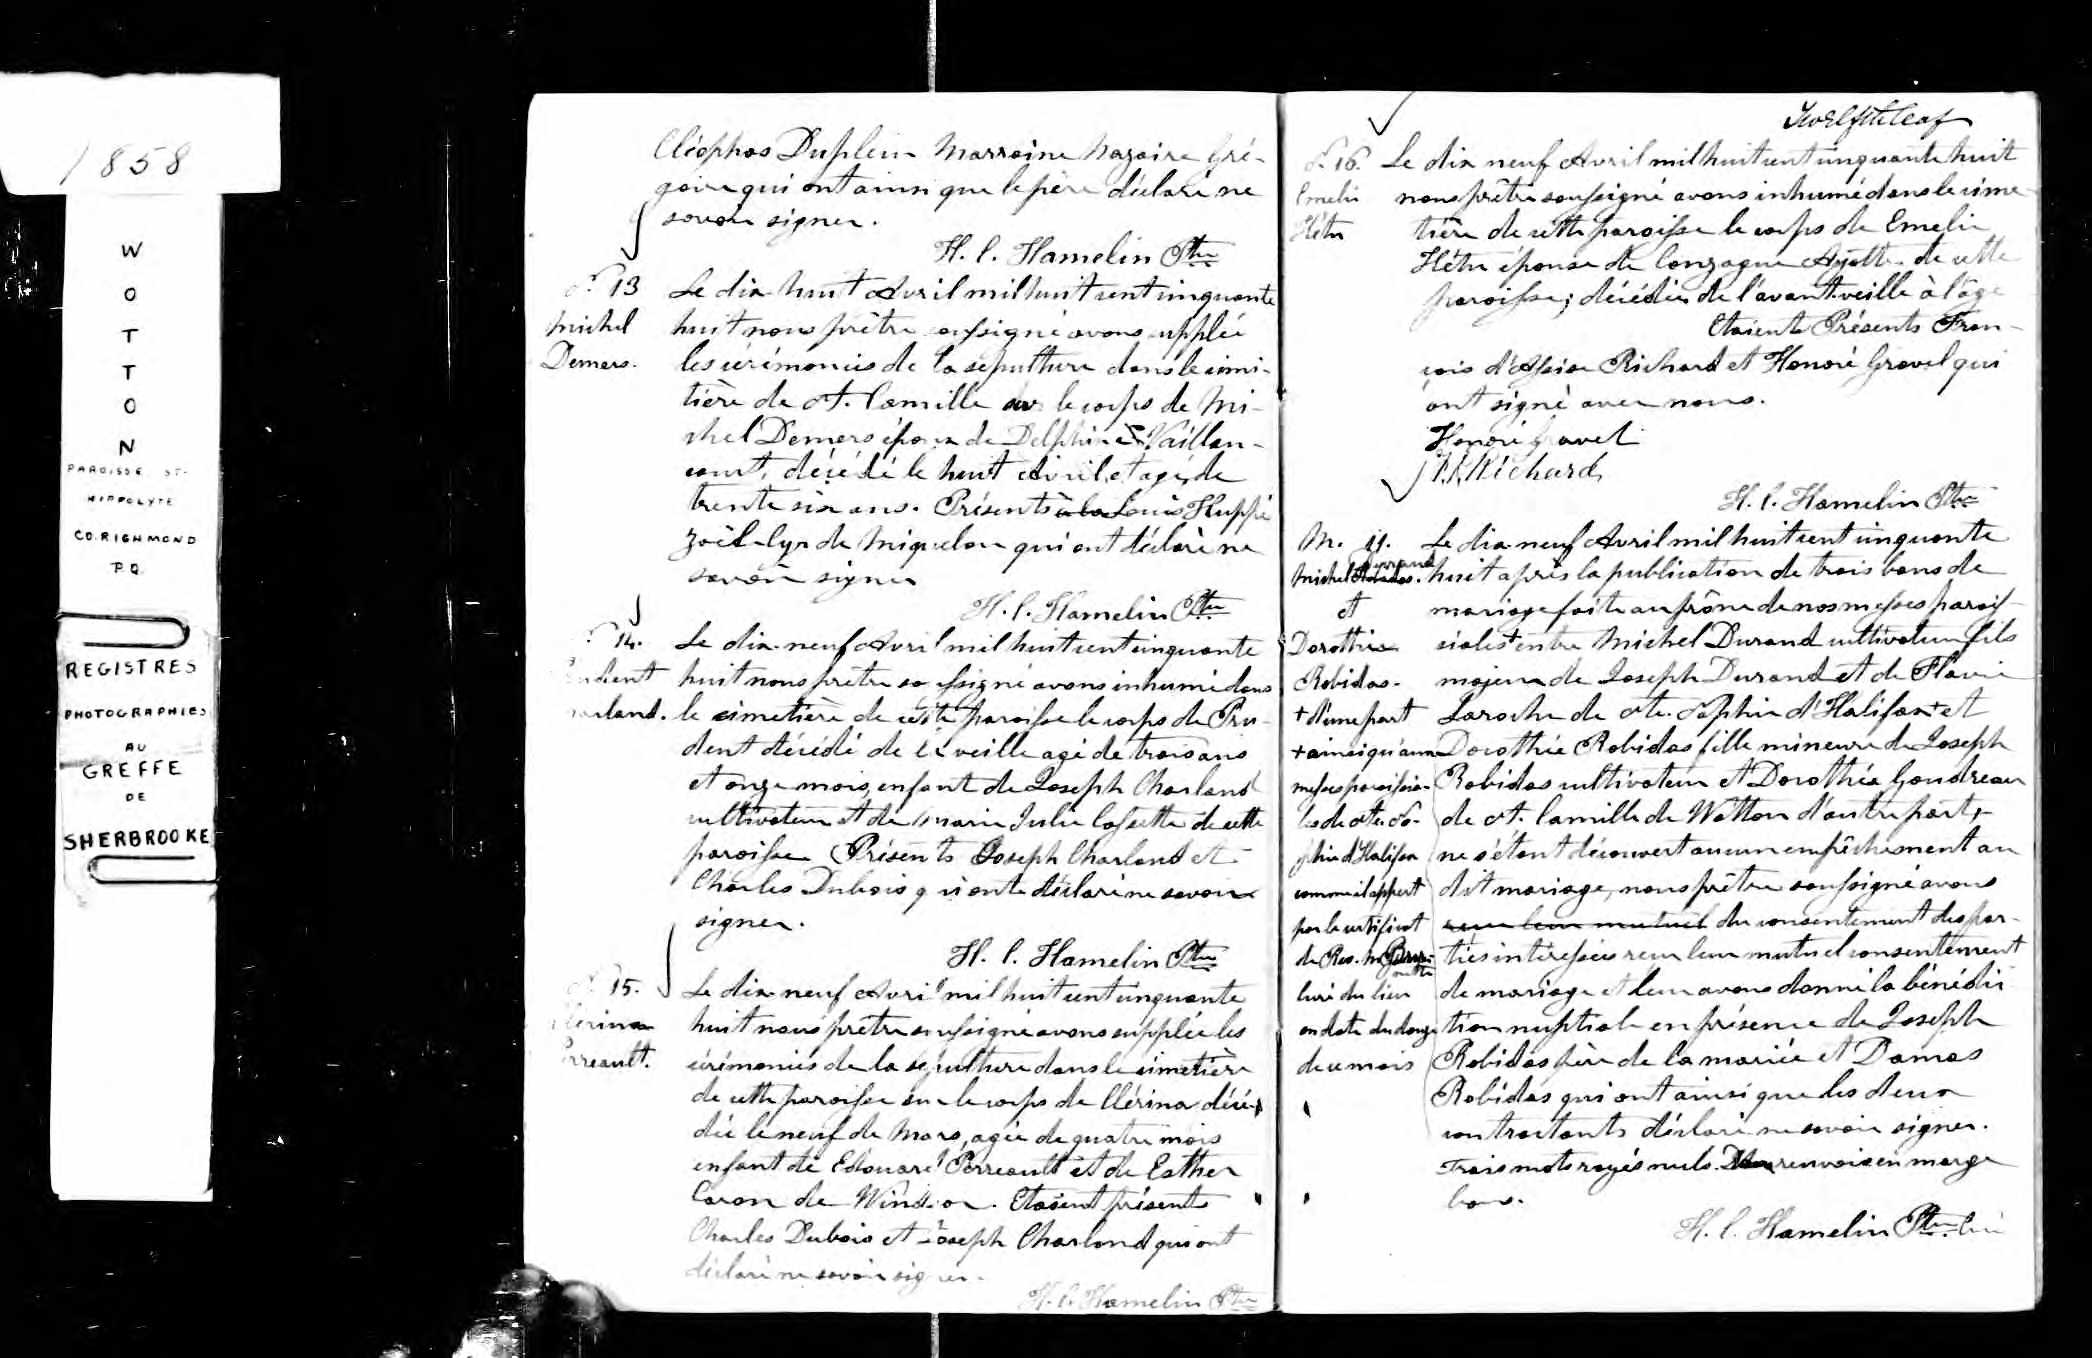 1858
W
O
T
T
O
N
PAROISSE ST-
HIPPOLYTE
CO. RICHMOND
P.Q.
REGISTRES
PHOTOGRAPHIES
AU
GREFFE
DE
SHERBROOKE
Cléophas Duplein Marraine Nazaire Gré-
goire qui ont ainsi que le père déclaré ne
savoir signer.
H. C. Hamelin Ptre
S. 13
Michel
Demers.
Le dix huit Avril mil huit cent cinquante
huit nous prêtre soussigné avons supplée
les cérémonies de la sépulture dans le cime-
tière de St. Camille sur le corps de Mi-
chel Demers époux de Delphine Vaillan-
court, décédé le huit Avril et agé de
trente six ans. Présents à la Louis Huppé
Zoël Cyr de Miquelon qui ont déclaré ne
savoir signer
H. C. Hamelin Ptre
14.
Prudent
Charland.
Le dix-neuf Avril mil huit cent cinquante
huit nous prêtre soussigné avons inhumé dans
le cimetière de cette paroisse le corps de Pru-
dent décédé de la veille agé de trois ans
et onze mois, enfant de Joseph Charland
cultivateur et de Marie Julie Cossette de cette
paroisse Présents Joseph Charland et
Charles Dubois qui ont déclaré ne savoir
signer.
H. C. Hamelin Ptre
S. 15.
Clérina
Perreault.
Le dix-neuf Avril mil huit cent cinquante
huit nous prêtre soussigné avons supplée les
cérémonies de la sépulture dans le cimetière
de cette paroisse sur le corps de Clérina décé-
dée le neuf de Mars, agée de quatre mois
enfant de Edouard Perreault et de Esther
Caron de Windsor. Etaient présents
Charles Dubois et Joseph Charland qui ont
déclaré ne savoir signer.
H. C. Hamelin Ptre
Twelfth leaf
S. 16.
Emelie
Hétu
Le dix neuf Avril mil huit cent cinquante huit
nous prêtre soussigné avons inhumé dans le cime-
tière de cette paroisse le corps de Emelie
Hétu épouse de Gonzague Ayotte de cette
paroisse; décédée de l'avant-veille à l'âge
Etaient Présents Fran-
çois d'Assise Richard et Honoré Gravel qui
ont signé avec nous.
Honoré Gravel
F. A. Richard
H. C. Hamelin Ptre
M. 11.
Durand
Michel
et
Dorothée
Robidas.
+ d'une part
+ ainsi qu'aux
messes paroissia-
les de Ste. So-
phie d'Halifax
comme il appert
par le certificat
de Rev. M.
curé du lieu
en date du douze
de ce mois
Le dix-neuf Avril mil huit cent cinquante
huit après la publication de trois bans de
mariage faite au prône de nos messes parois-
siales + entre Michel Durand cultivateur fils
majeur de Joseph Durand et de Flavie
Laroche de Ste. Sophie d'Halifax + et
Dorothée Robidas fille mineure de Joseph
Robidas cultivateur et Dorothée Goudreau
de St. Camille de Wotton d'autre part,
ne s'étant découvert aucun empêchement au
dit mariage, nous prêtre soussigné avons
reçu leur mutuel du consentement des par-
ties intéressées reçu leur mutuel consentement
de mariage et leur avons donné la bénédic-
tion nuptiale en présence de Joseph
Robidas père de la mariée et Damas
Robidas qui ont ainsi que les deux
contractants déclaré ne savoir signer.
Trois mots rayés nuls. Deux renvois en marge
bons.
H. C. Hamelin Ptre Curé